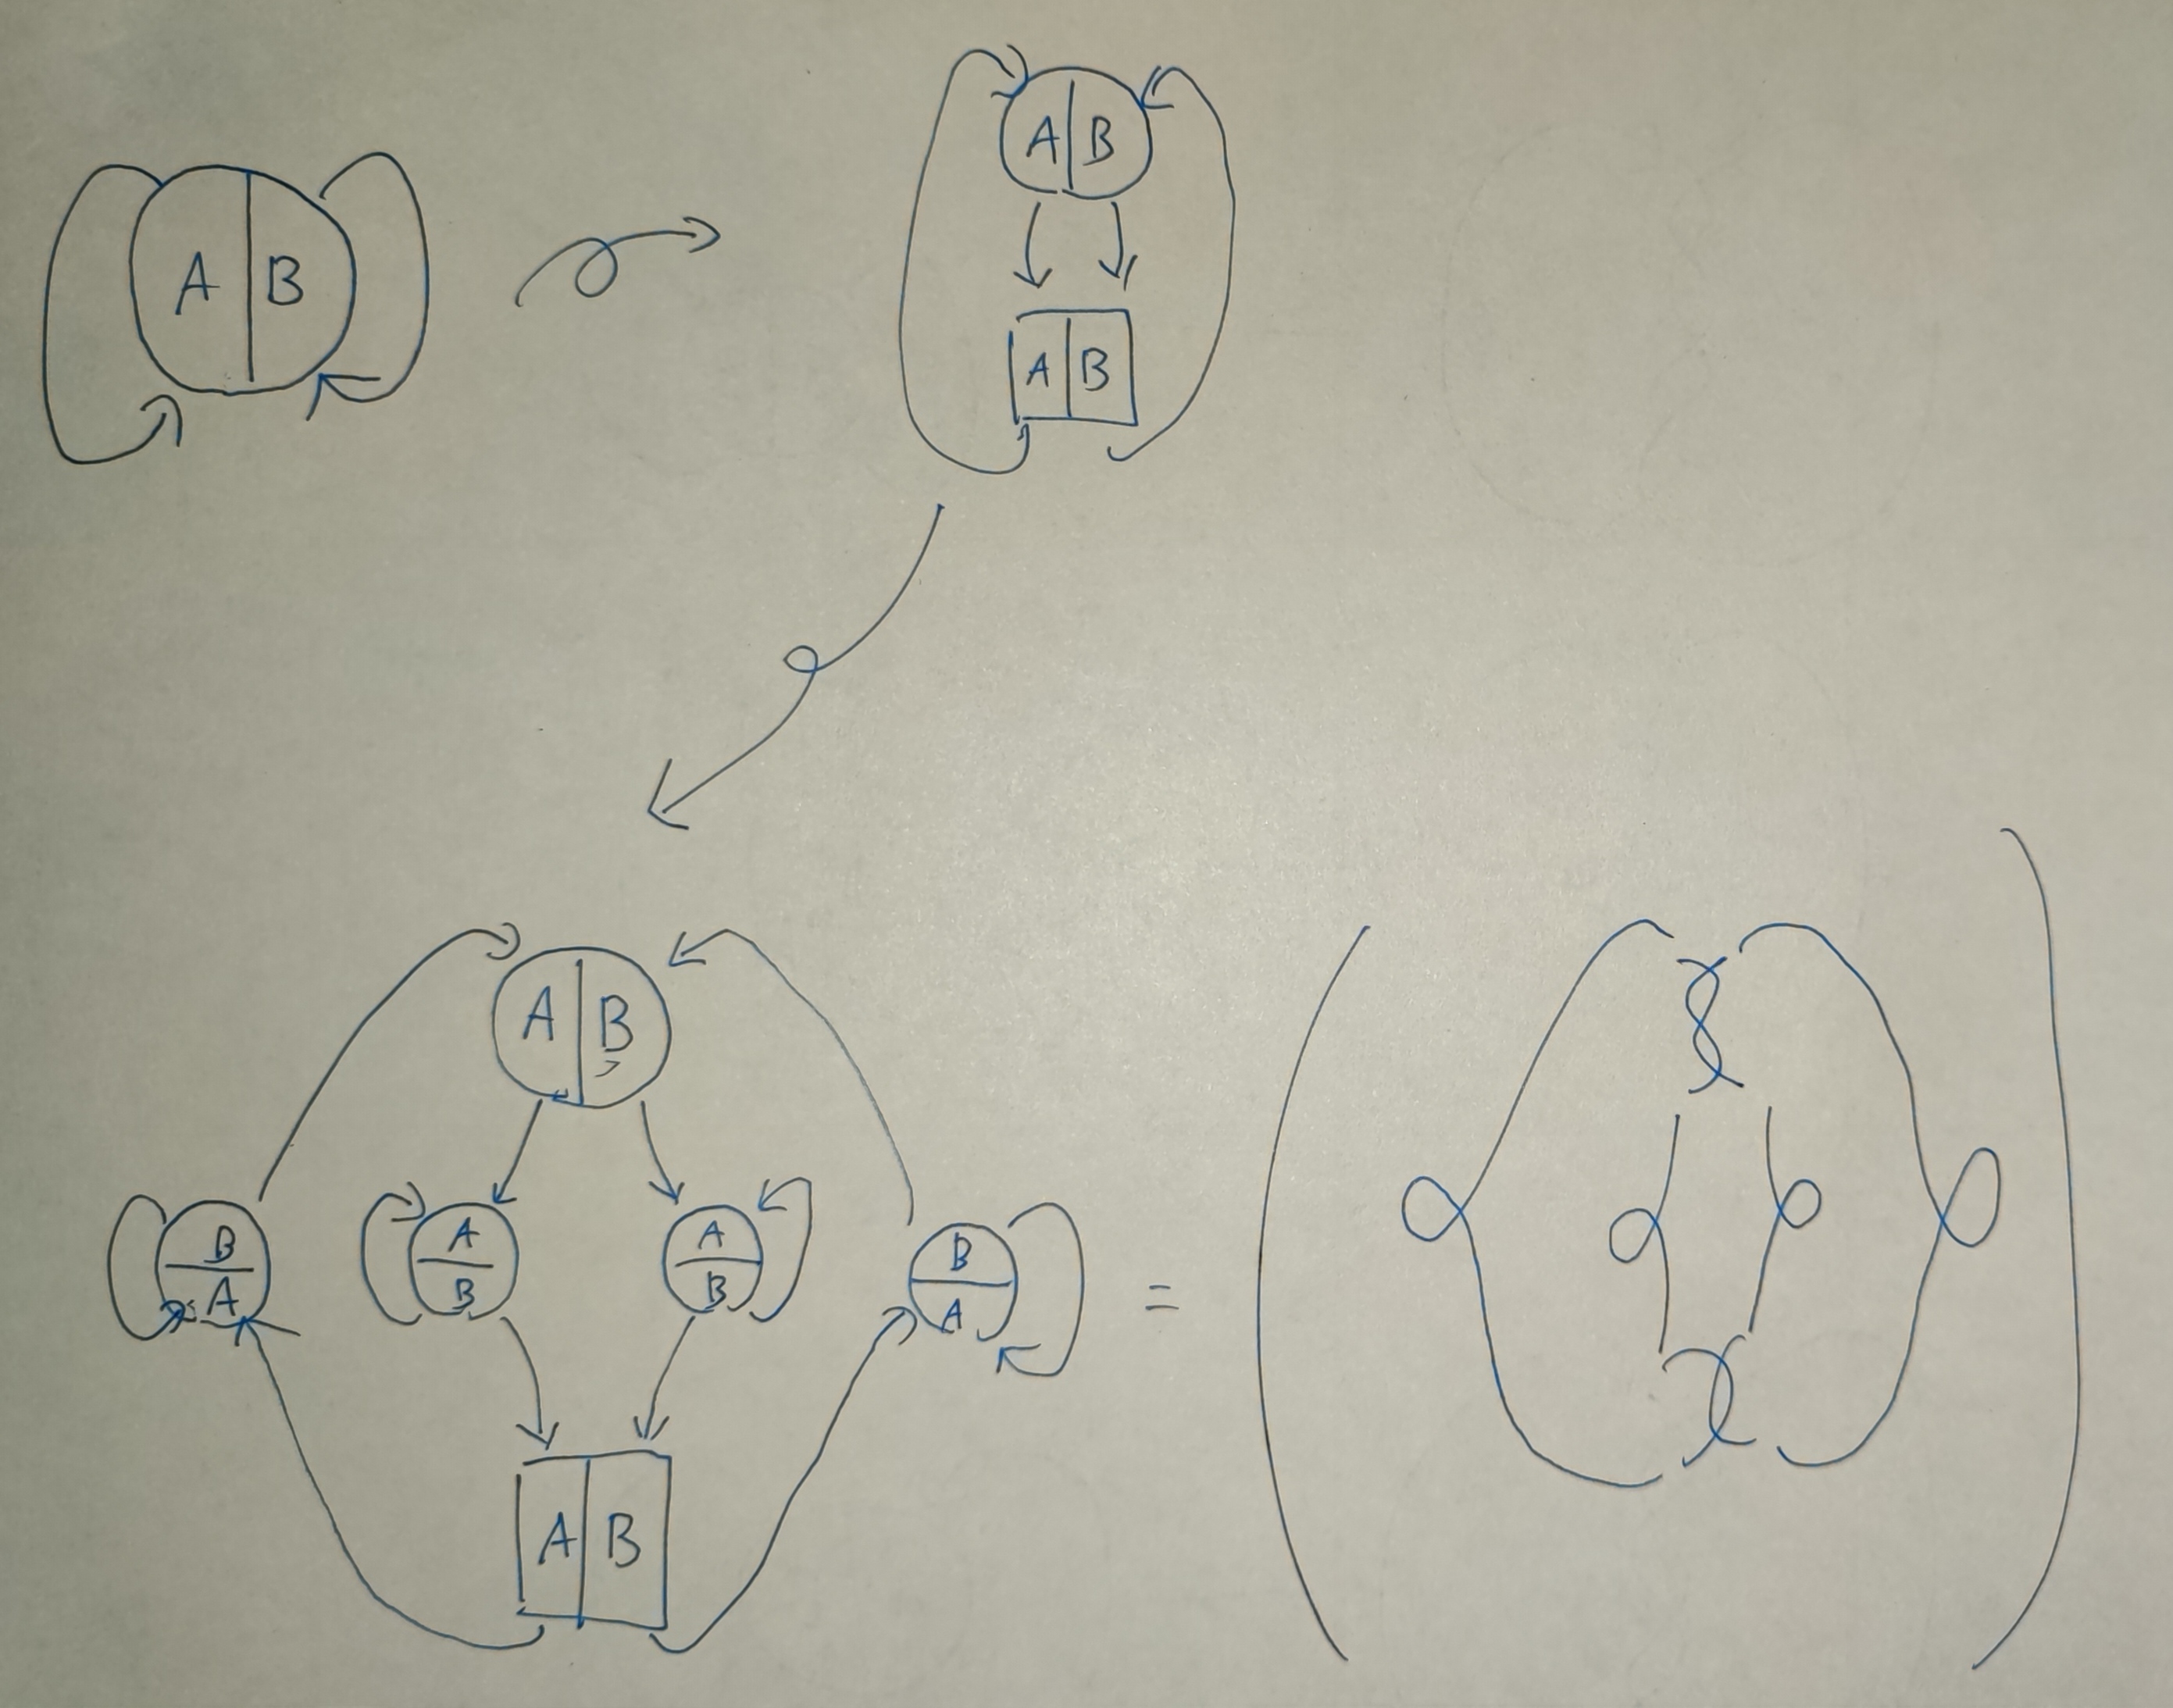 A B
A B
A B
A B
B
A
A
B
A
B
B
A
=
A B